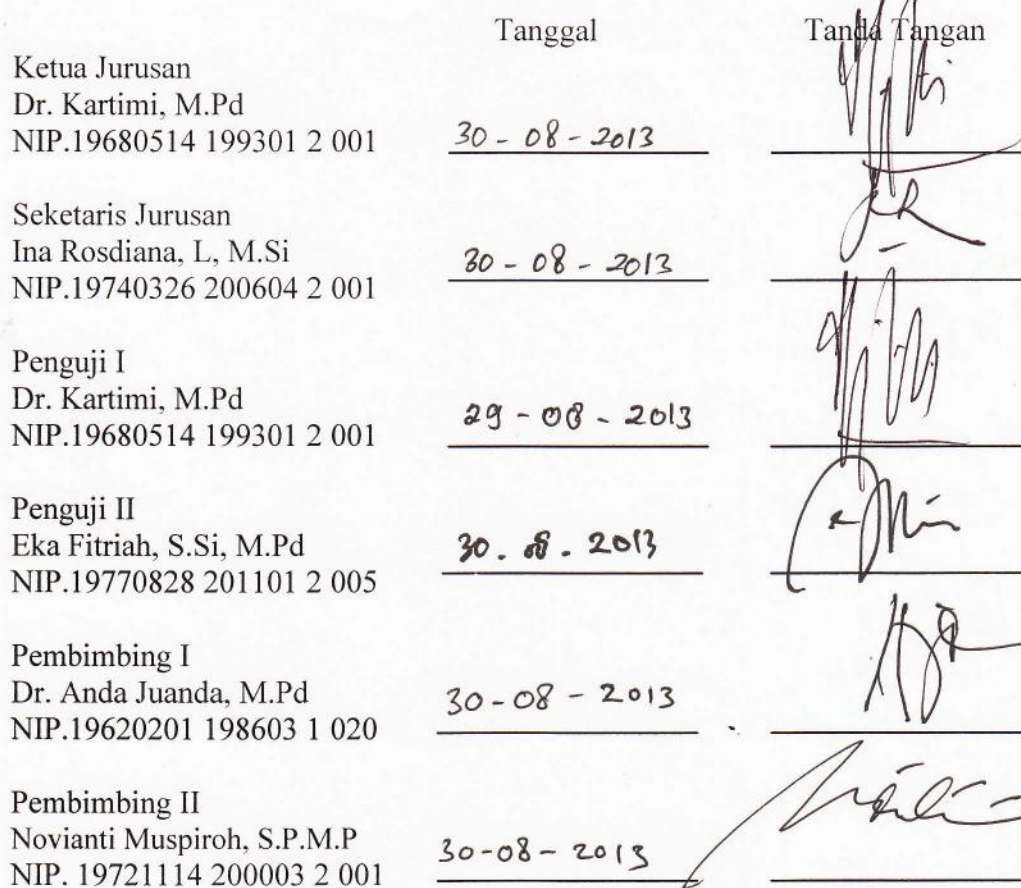 Tanggal Tanda Tangan
Ketua Jurusan
Dr. Kartimi, M.Pd
NIP.19680514 199301 2 001 30 - 08 - 2013
Seketaris Jurusan
Ina Rosdiana, L, M.Si
NIP.19740326 200604 2 001 30 - 08 - 2013
Penguji I
Dr. Kartimi, M.Pd
NIP.19680514 199301 2 001 29 - 08 - 2013
Penguji II
Eka Fitriah, S.Si, M.Pd
NIP.19770828 201101 2 005 30 . 08 . 2013
Pembimbing I
Dr. Anda Juanda, M.Pd
NIP.19620201 198603 1 020 30 - 08 - 2013
Pembimbing II
Novianti Muspiroh, S.P.M.P
NIP. 19721114 200003 2 001 30 - 08 - 2013